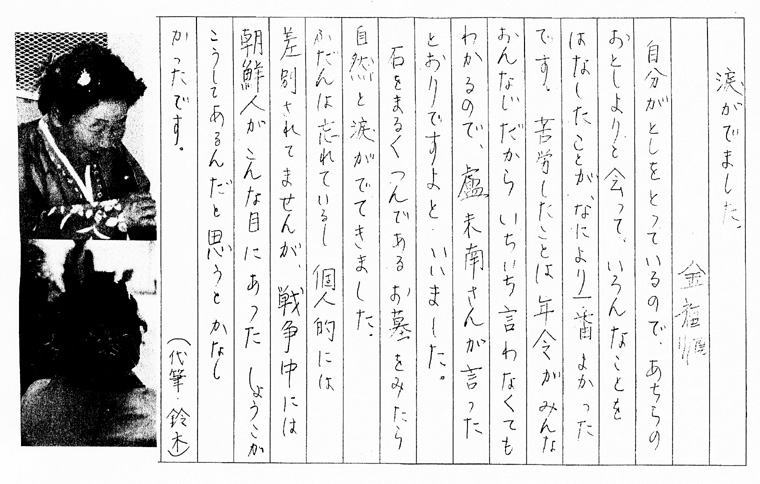 涙がでました。
金福順
自分がとしをとっているので、あちらの
おとしよりと会って、いろんなことを
はなしたことが、なにより一番よかった
です。苦労したことは年令がみんな
おんなじだから いちいち言わなくても
わかるので、盧末南さんが言った
とおりですよと いいました。
石をまるくつんである お墓をみたら
自然と涙がでてきました。
ふだんは忘れているし 個人的には
差別されてませんが、戦争中には
朝鮮人がこんな目にあった しょうこが
こうしてあるんだと思うと かなし
かったです。
(代筆・鈴木)